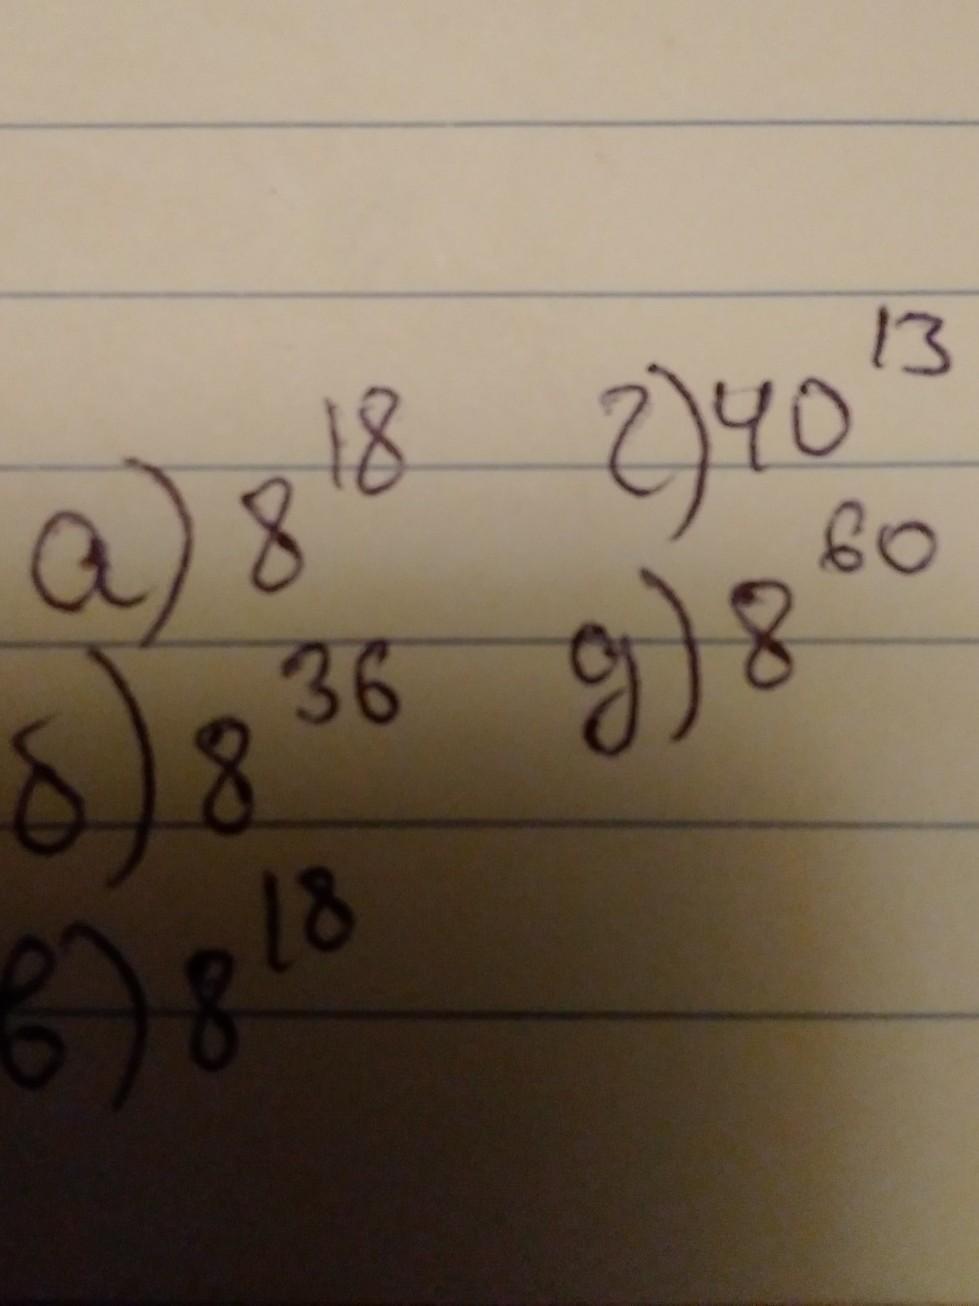 а) 8^18
б) 8^36
в) 8^18
г) 40^13
д) 8^60